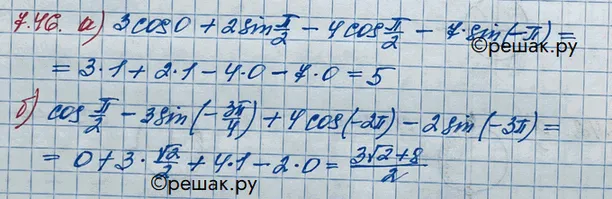 7.46. а) 3 cos 0 + 2 sin π/2 - 4 cos π/2 - 7 · sin(-π) =
©решак.ру
= 3 · 1 + 2 · 1 - 4 · 0 - 7 · 0 = 5
б) cos π/2 - 3 sin(-3π/4) + 4 cos(-2π) - 2 sin(-3π) =
= 0 + 3 · √2/2 + 4 · 1 - 2 · 0 = (3√2 + 8)/2
©решак.ру